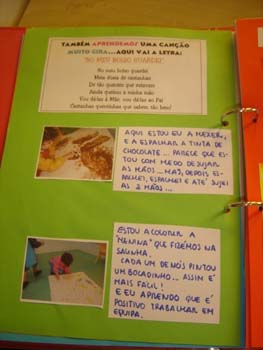 TAMBÉM APRENDEMOS UMA CANÇÃO
MUITO GIRA...AQUI VAI A LETRA:
"NO MEU BOLSO GUARDEI"
No meu bolso guardei
Meia dúzia de castanhas
De tão quentes que estavam
Ainda queimei a minha mão
Vou dá-las à Mãe, vou dá-las ao Pai
Castanhas quentinhas que sabem tão bem!
AQUI ESTOU EU A MEXER,
E A ESPALHAR A TINTA DE
CHOCOLATE... PARECE QUE ES-
TOU COM MEDO DE SUJAR
AS MÃOS... MAS, DEPOIS ES-
PALHEI, ESPALHEI E ATÉ SUJEI
AS 2 MÃOS...
ESTOU A COLORIR A
"MENINA" QUE FIZEMOS NA
SALINHA.
CADA UM DE NÓS PINTOU
UM BOCADINHO... ASSIM É
MAIS FÁCIL!
E EU APRENDO QUE É
POSITIVO TRABALHAR EM
EQUIPA.